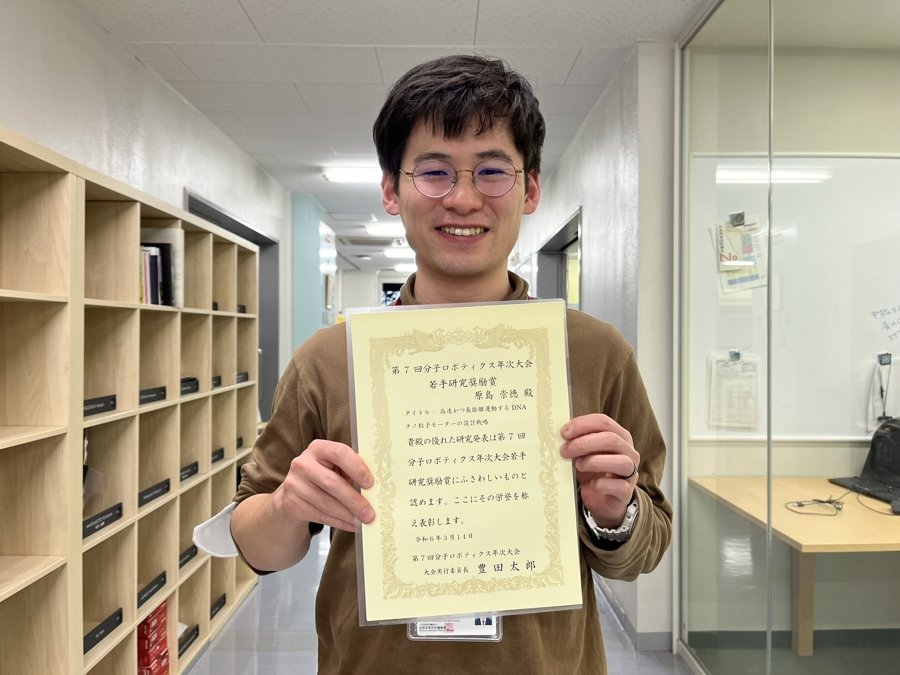 第7回分子ロボティクス年次大会
若手研究奨励賞
原島 崇徳 殿
タイトル： 高速かつ長距離運動するDNA
ナノ粒子モーターの設計戦略
貴殿の優れた研究発表は第7回
分子ロボティクス年次大会若手
研究奨励賞にふさわしいものと
認めます。ここにその栄誉を称
え表彰します。
令和6年3月14日
第7回分子ロボティクス年次大会
大会実行委員長 豊田太郎